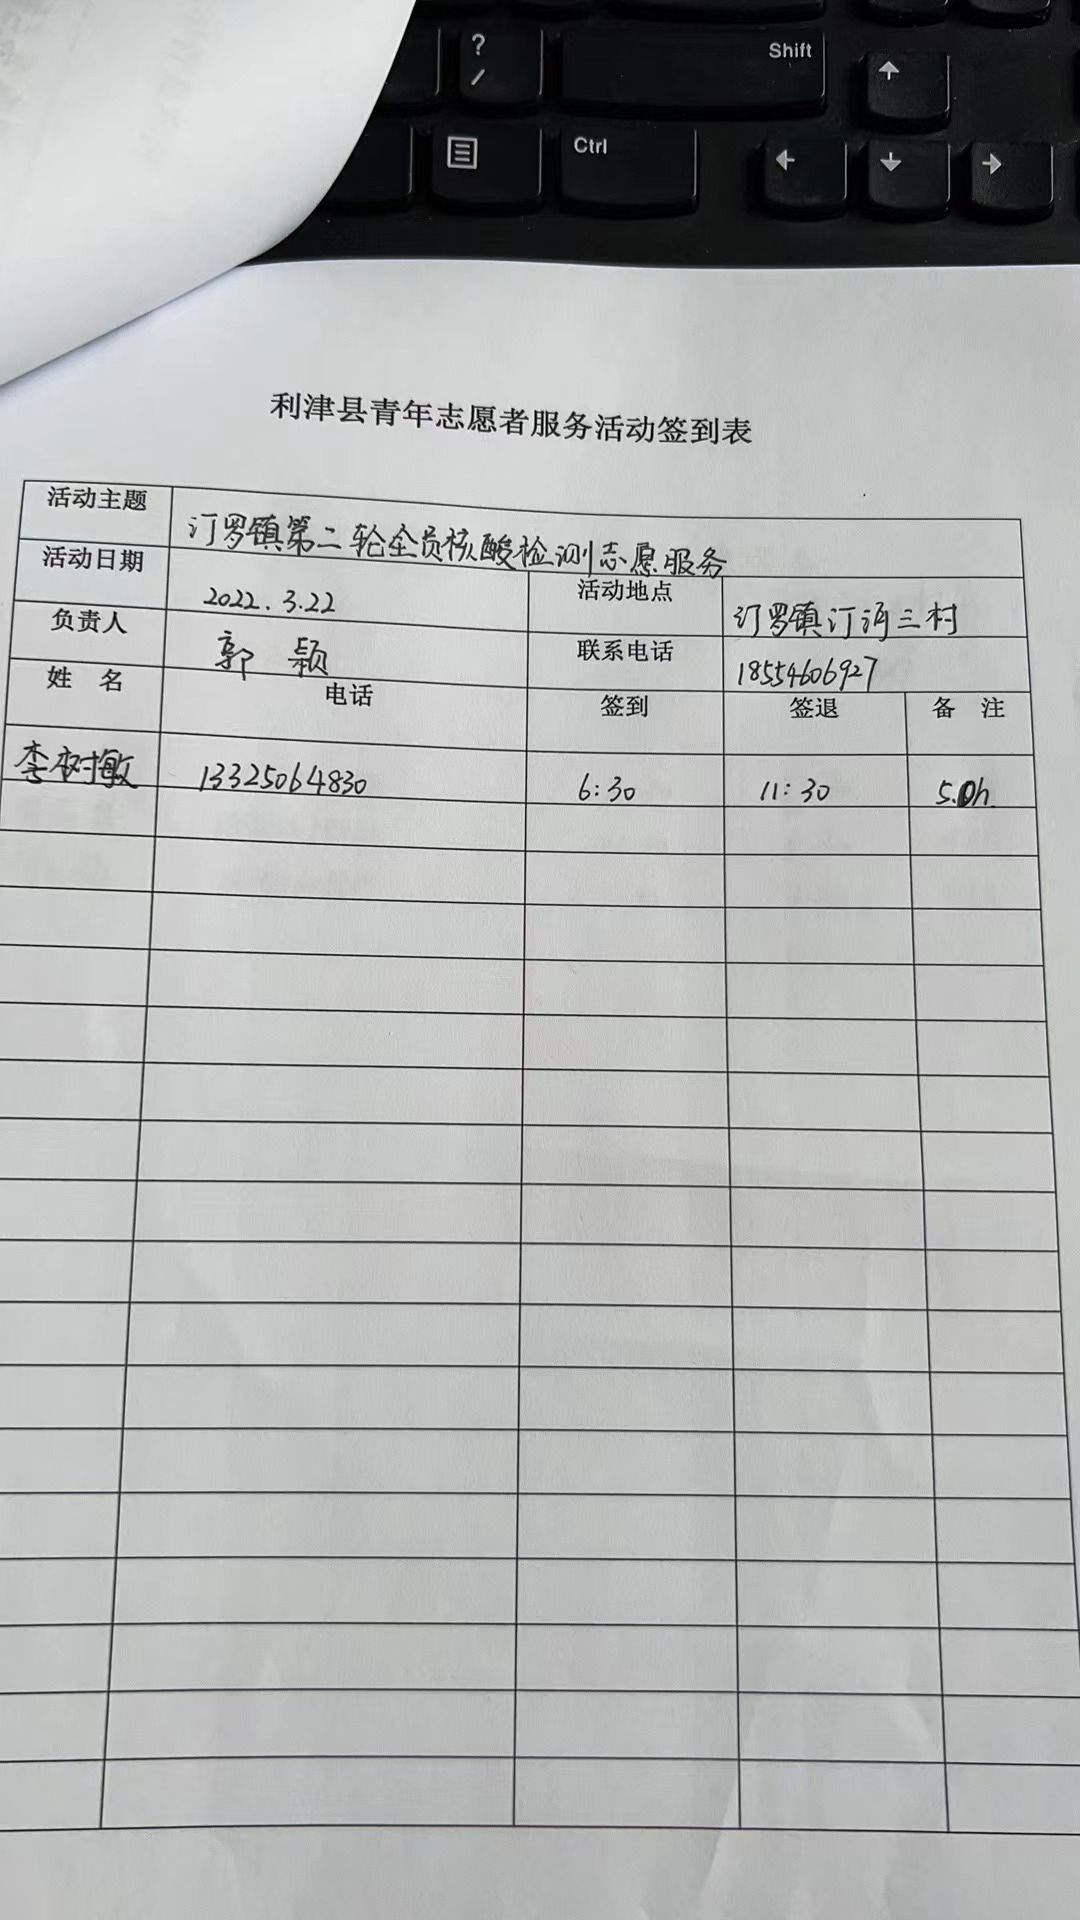 ?
/
Shift
Ctrl
利津县青年志愿者服务活动签到表
活动主题 汀罗镇第二轮全员核酸检测志愿服务
活动日期 2022.3.22 活动地点 汀罗镇汀河三村
负责人 郭颖 联系电话 18554606927
姓 名 电话 签到 签退 备 注
李树敏 13325064830 6:30 11:30 5.0h